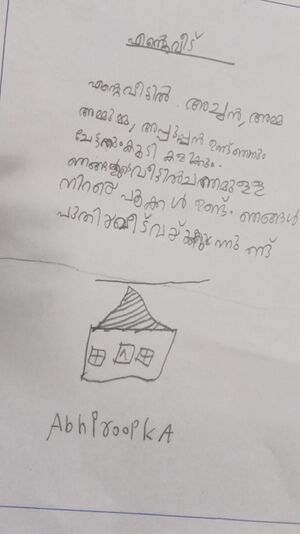 എന്റെവീട്
എന്റെവീട്ടിൽ. അച്ഛൻ, അമ്മ
അമ്മുമ്മ, അപ്പുപ്പൻ ഉണ്ട് ഞാനും
ചേട്ടനുംകൂടി കളിക്കും.
ഞങ്ങളുടെവീട്ടിൽ
നിറയെ പൂക്കൾ ഉണ്ട്. ഞങ്ങൾ
പുതിയവീട്
Abhiroop K A